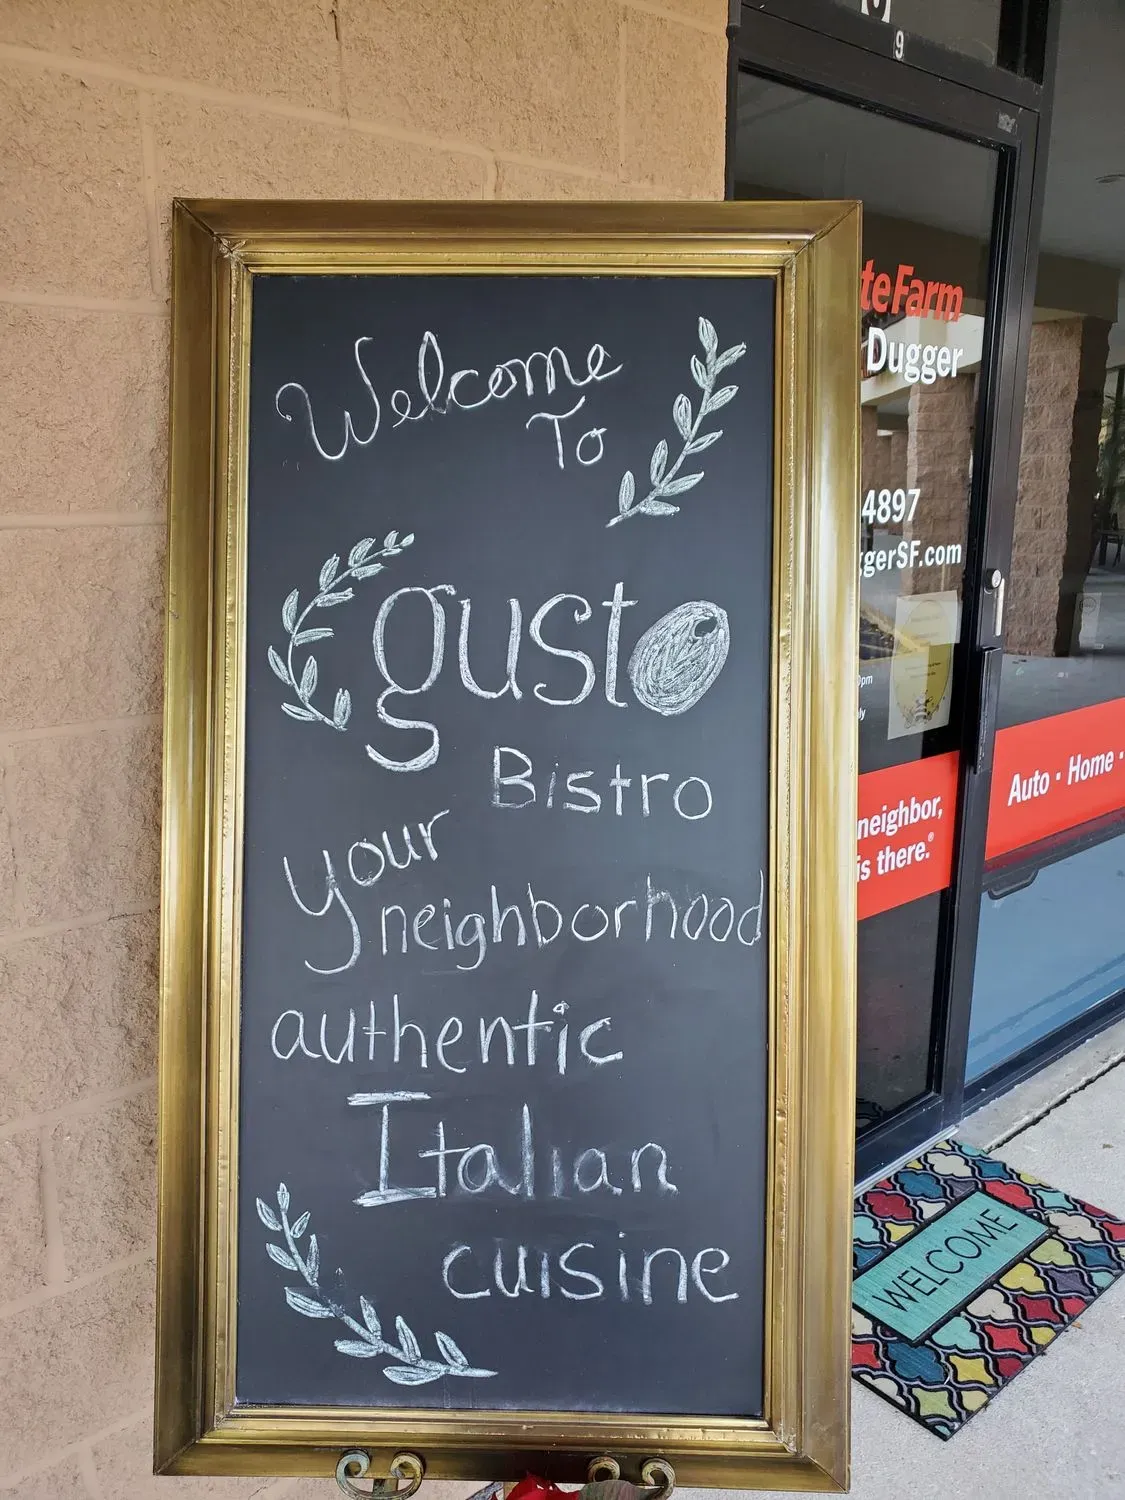 Welcome
To
gusto
Bistro
your
neighborhood
authentic
Italian
cuisine
9
teFarm
Dugger
4897
ggerSF.com
neighbor,
is there.®
Auto · Home ·
WELCOME